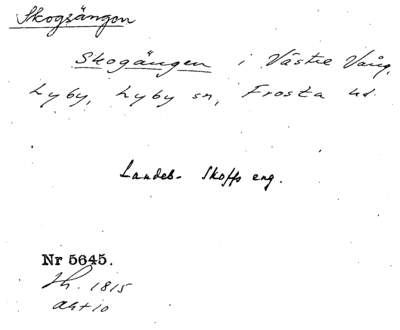 Skogsängen
Skogängen i Västre Vång,
Lyby, Lyby sn, Frosta hd.
Landeb- Skoffs eng.
Nr 5645.
1815
akt 10